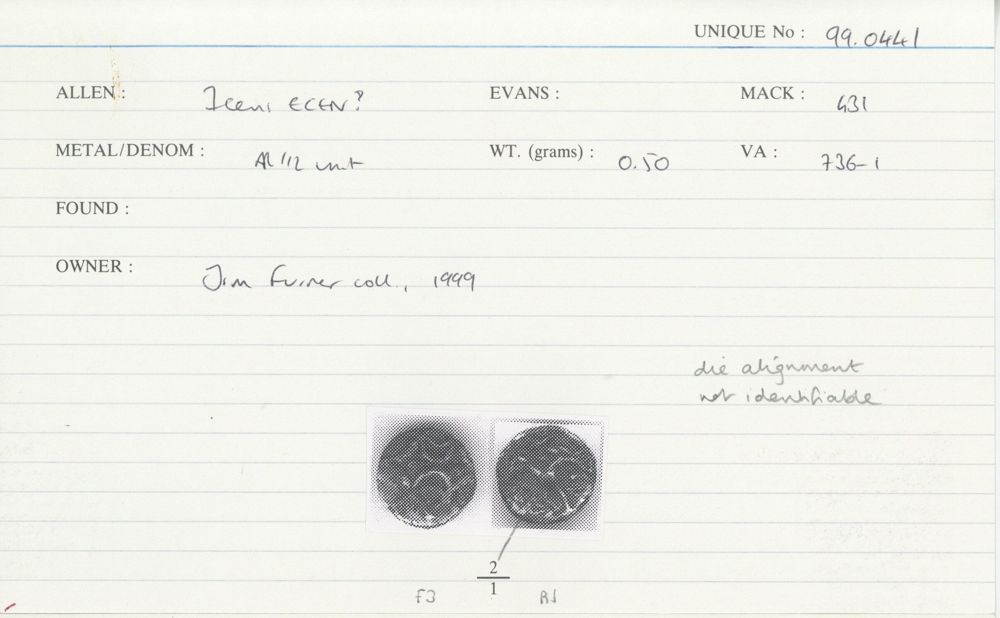 UNIQUE No : 99.0441
ALLEN : Iceni ECEN? EVANS : MACK : 431
METAL/DENOM : AR 1/2 unit WT. (grams) : 0.50 VA : 736-1
FOUND :
OWNER : Jim coll., 1999
die alignment
not identifiable
2
1
F3 R1